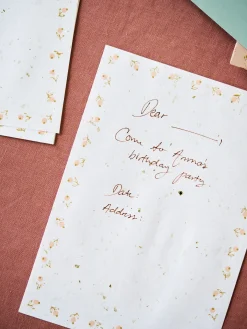 Dear ______,
Come to Anna's
birthday party
Date:
Address: